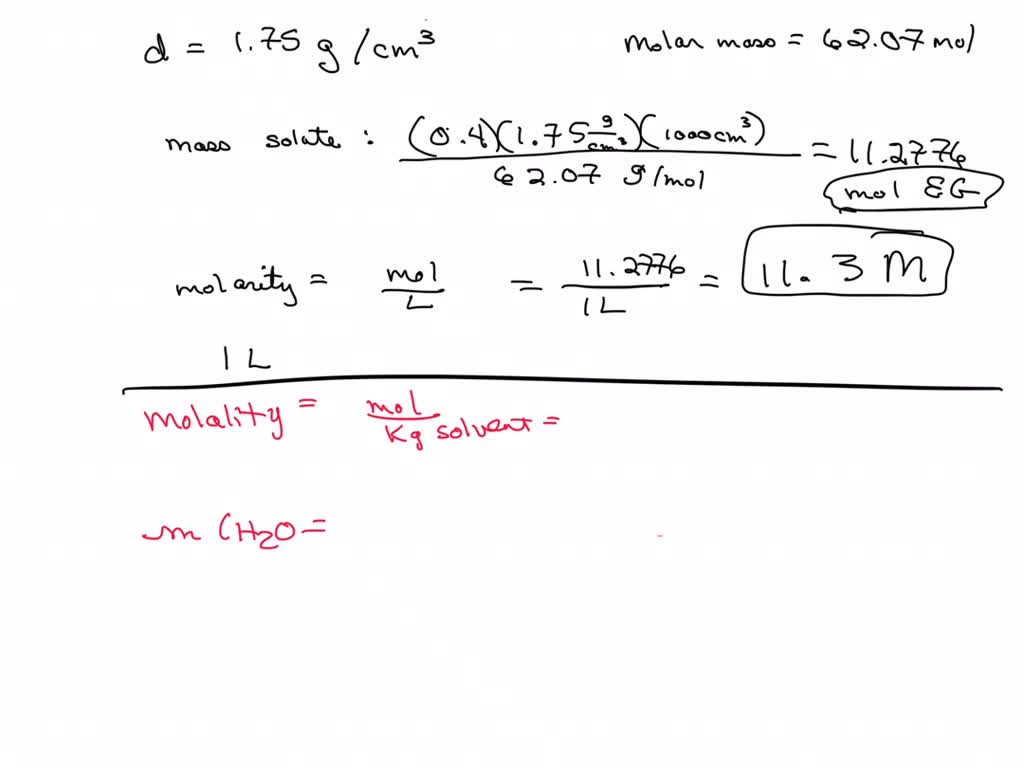 d = 1.75 g/cm³
molar mass = 62.07 mol
mass solate : (0.4)(1.75 g/cm³)(1000cm³) / 62.07 g/mol = 11.2776
mol EG
molarity = mol/L = 11.2776/1L = 11.3 M
1 L
molality = mol/Kg solvent =
m (H₂O =